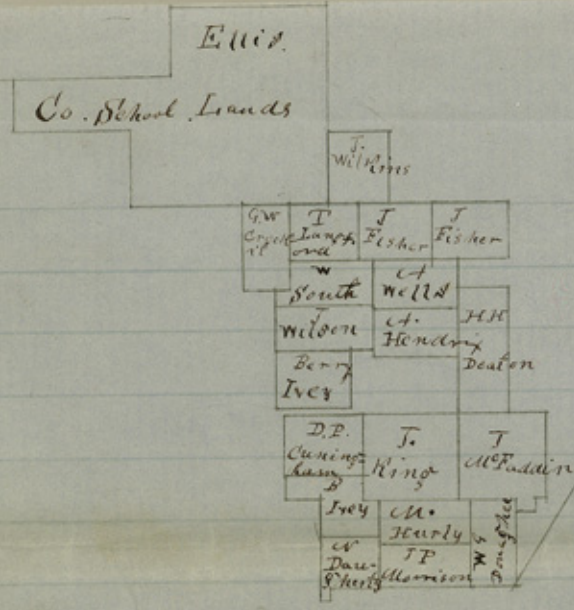 Ellis.
Co. School Lands
J.
Wilkins
G.W
T
Langf
ord
J
Fisher
J
Fisher
W
South
A
Wells
J
Wilson
A.
Hendrix
H.H
Deaton
Berry
Ivey
D.P.
Cuning-
ham
J.
King
J
McFaddin
B
Ivey
M.
Hurly
N
Daugherty
J P
Morrison